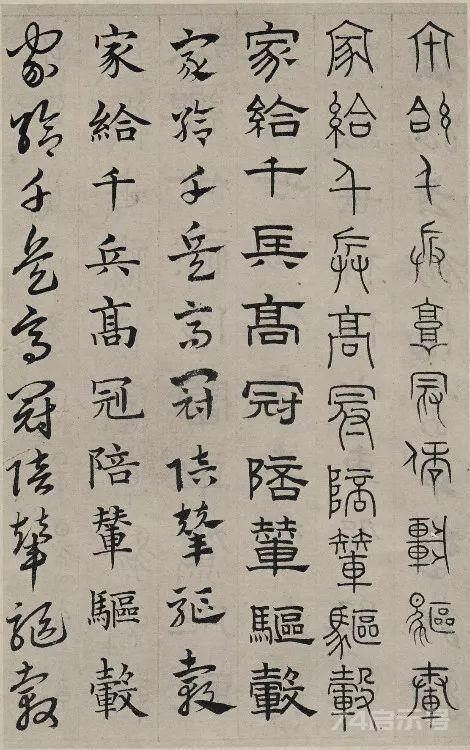 家給千兵高冠陪輦驅轂
家給千兵高冠陪輦驅轂
家給千兵高冠陪輦驅轂
家給千兵高冠陪輦驅轂
家給千兵高冠陪輦驅轂
家給千兵高冠陪輦驅轂